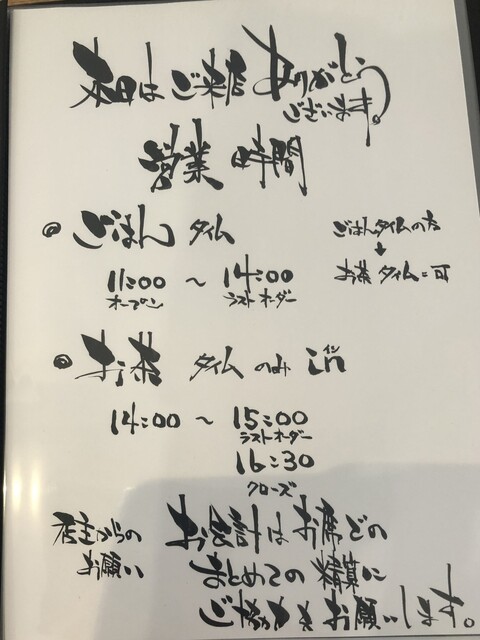 本日はご来店ありがとうございます。
営業時間
◎ ごはん タイム
11:00 〜 14:00
オープン ラストオーダー
ごはんタイムの方
↓
お茶タイム:可
◎ お茶 タイム のみ in
イン
14:00 〜 15:00
ラストオーダー
16:30
クローズ
店主からの
お願い
お会計はお席での
まとめての精算に
ご協力をお願いします。